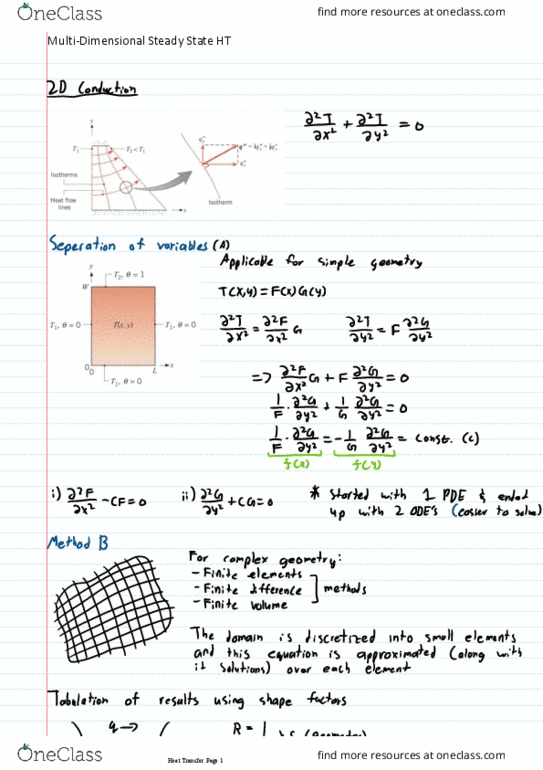 OneClass
find more resources at oneclass.com
Multi-Dimensional Steady State HT
2D Conduction
∂²T/∂x² + ∂²T/∂y² = 0
y
T₁
T₂ < T₁
Isotherms
Heat flow lines
x
Isotherm
Seperation of variables (A)
Applicable for simple geometry
y
T₂, θ = 1
W
T(x,y) = F(x)G(y)
T₁, θ = 0
T(x, y)
T₁, θ = 0
∂²T/∂x² = ∂²F/∂x² G
∂²T/∂y² = F ∂²G/∂y²
0
0
L
x
T₁, θ = 0
=> ∂²F/∂x² G + F ∂²G/∂y² = 0
1/F · ∂²G/∂y² + 1/G ∂²G/∂y² = 0
1/F · ∂²G/∂y² = -1/G ∂²G/∂y² = const. (c)
f(x)
f(y)
i) ∂²F/∂x² - CF = 0
ii) ∂²G/∂y² + CG = 0
* Started with 1 PDE & ended
up with 2 ODE's (easier to solve)
Method B
For complex geometry:
- Finite elements
- Finite difference
methods
- Finite volume
The domain is discretized into small elements
and this equation is approximated (along with
it solutions) over each element
Tabulation of results using shape factors
q →
R = 1
OneClass
Heat Transfer Page 1
find more resources at oneclass.com